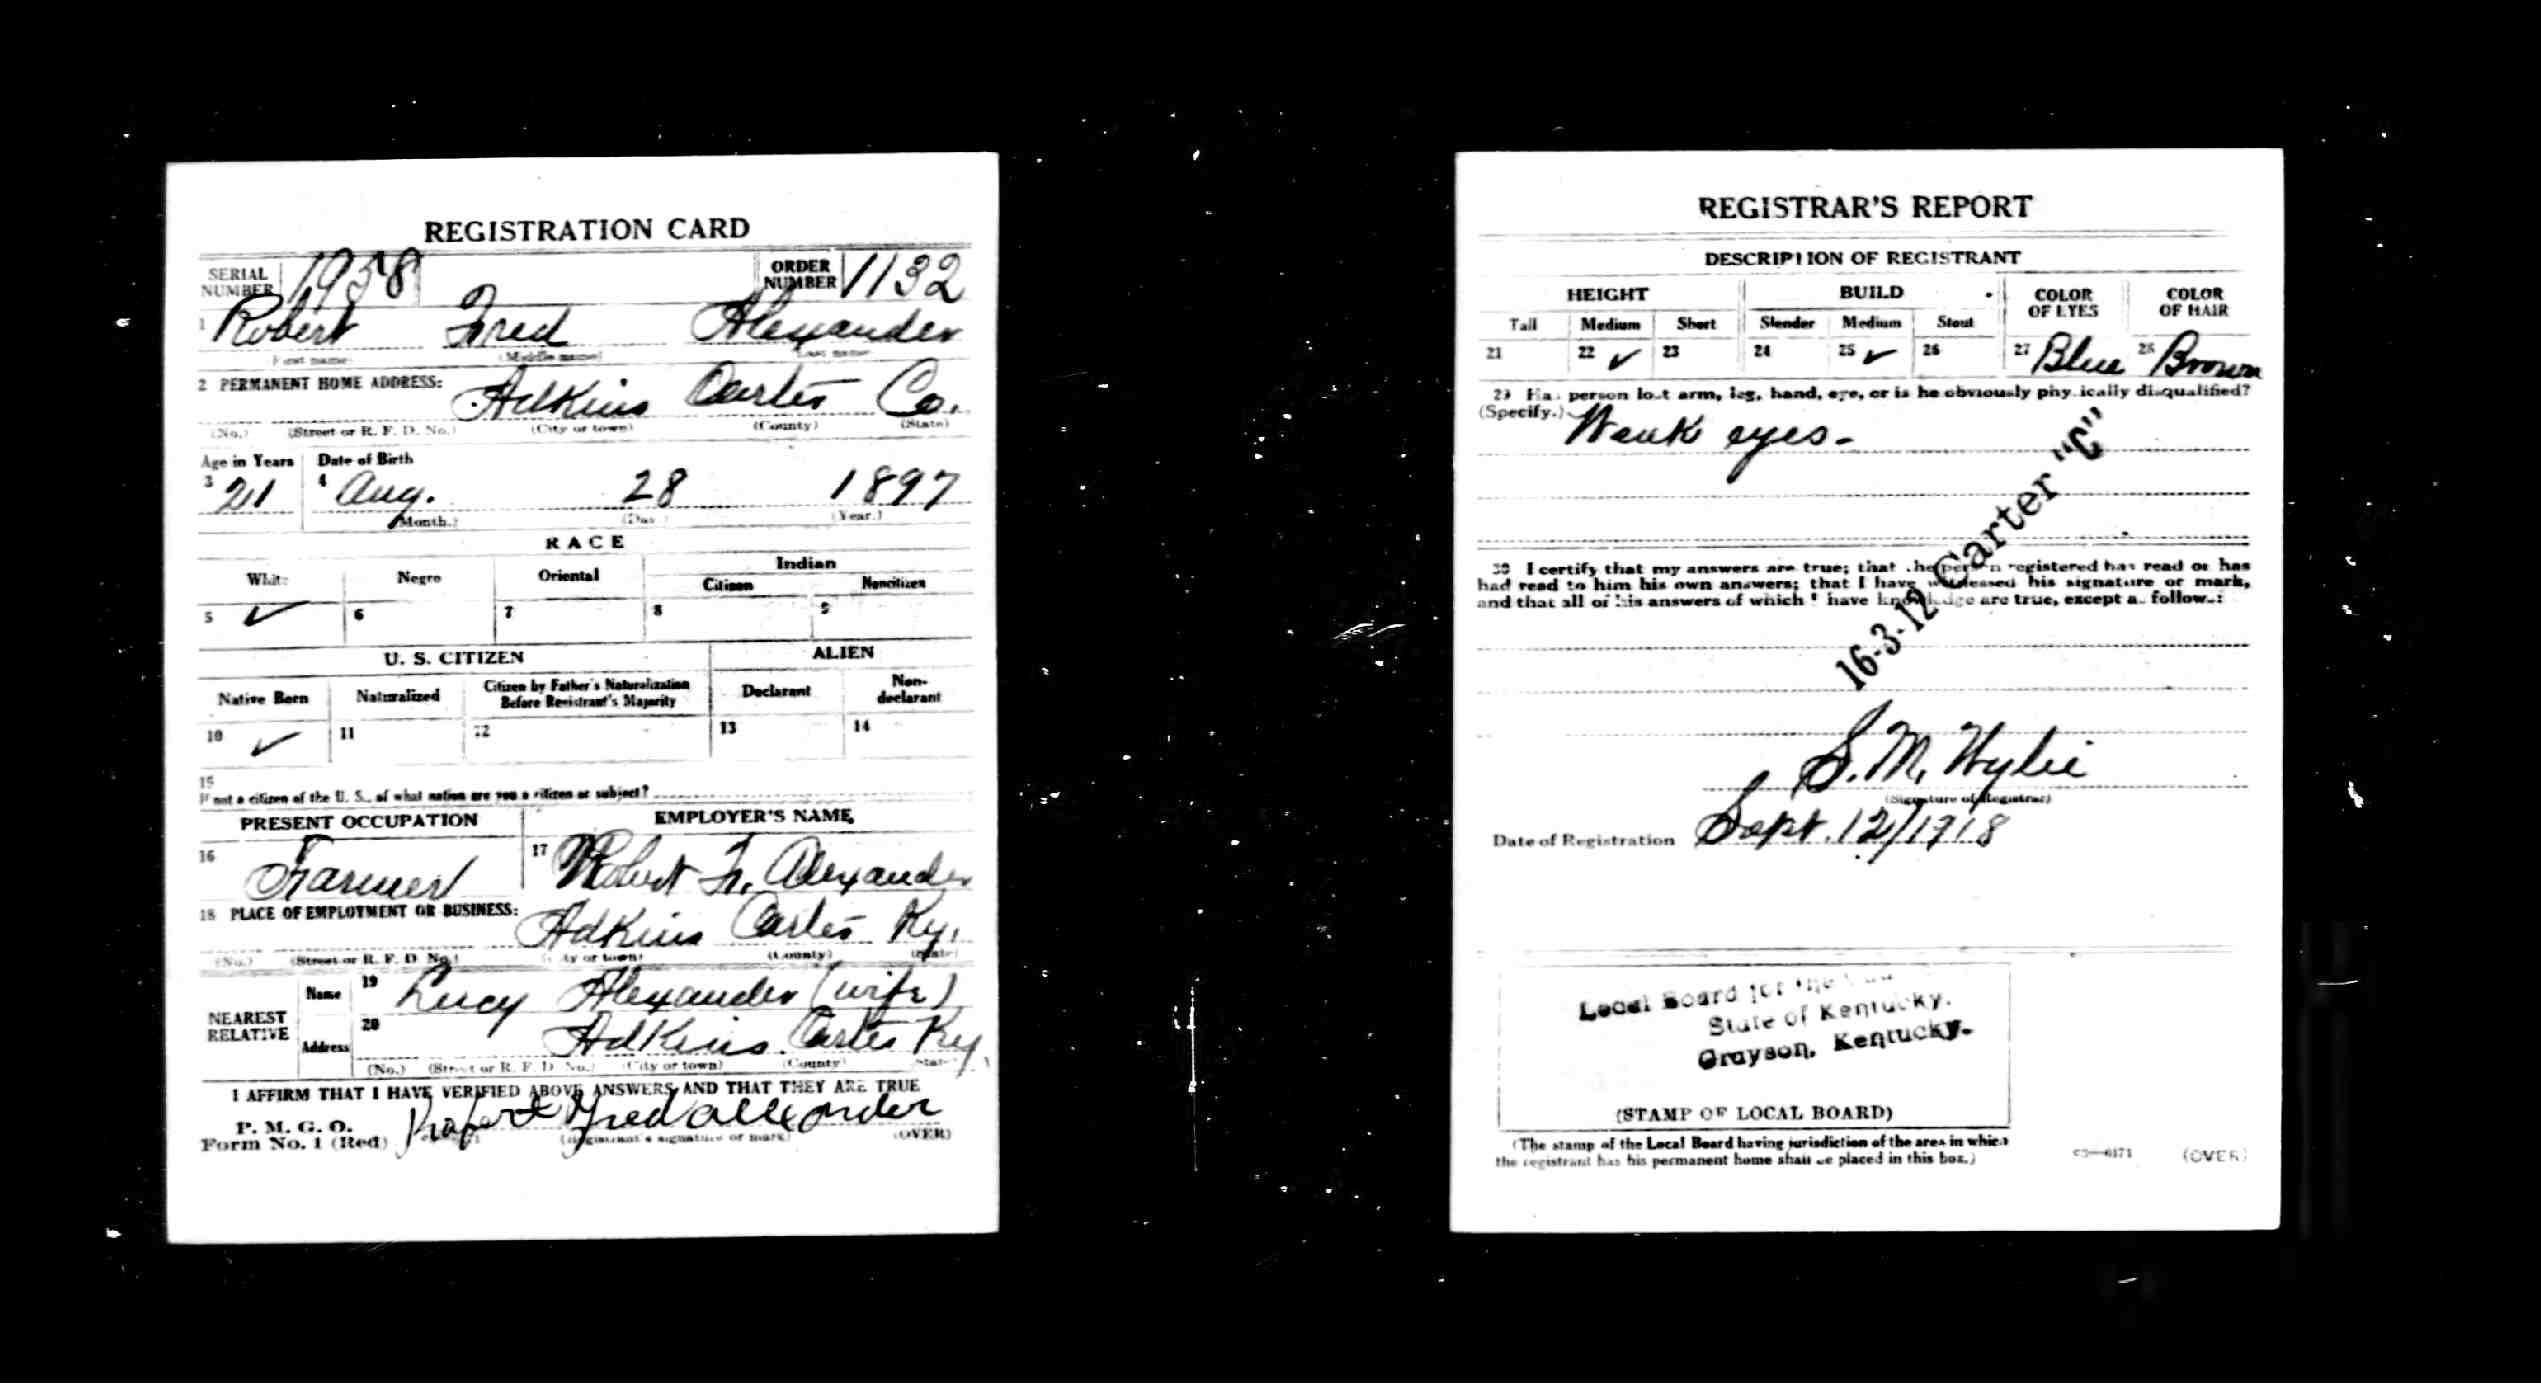 REGISTRATION CARD
SERIAL NUMBER 1958 ORDER NUMBER 1132
1 Robert Fred Alexander
(First name) (Middle name) (Last name)
2 PERMANENT HOME ADDRESS: Adkins Carter Co.
(No.) (Street or R. F. D. No.) (City or town) (County) (State)
Age in Years Date of Birth
3 21 4 Aug. 28 1897
(Month.) (Day.) (Year.)
RACE
White Negro Oriental Indian
Citizen Noncitizen
5 ✓ 6 7 8 9
U. S. CITIZEN ALIEN
Native Born Naturalized Citizen by Father's Naturalization Before Registrant's Majority Declarant Non-declarant
10 ✓ 11 12 13 14
15
If not a citizen of the U. S., of what nation are you a citizen or subject?
PRESENT OCCUPATION EMPLOYER'S NAME
16 Farmer 17 Robert Fr. Alexander
18 PLACE OF EMPLOYMENT OR BUSINESS: Adkins Carter Ky.
(No.) (Street or R. F. D. No.) (City or town) (County) (State)
NEAREST RELATIVE Name 19 Lucy Alexander (wife)
Address 20 Adkins Carter Ky.
(No.) (Street or R. F. D. No.) (City or town) (County) (State)
I AFFIRM THAT I HAVE VERIFIED ABOVE ANSWERS AND THAT THEY ARE TRUE
P. M. G. O.
Form No. 1 (Red) Robert Fred alexander
(Registrant's signature or mark) (OVER)
REGISTRAR'S REPORT
DESCRIPTION OF REGISTRANT
HEIGHT BUILD COLOR OF EYES COLOR OF HAIR
Tall Medium Short Slender Medium Stout
21 22 ✓ 23 24 25 ✓ 26 27 Blue 28 Brown
29 Has person lost arm, leg, hand, eye, or is he obviously physically disqualified?
(Specify.) Weak eyes-
16-3-12 Carter "C"
30 I certify that my answers are true; that the person registered has read or has
had read to him his own answers; that I have witnessed his signature or mark,
and that all of his answers of which I have knowledge are true, except as follows:
S. M. Wylie
(Signature of Registrar)
Date of Registration Sept. 12/1918
Local Board for the
State of Kentucky.
Grayson, Kentucky.
(STAMP OF LOCAL BOARD)
(The stamp of the Local Board having jurisdiction of the area in which
the registrant has his permanent home shall be placed in this box.)
(OVER)